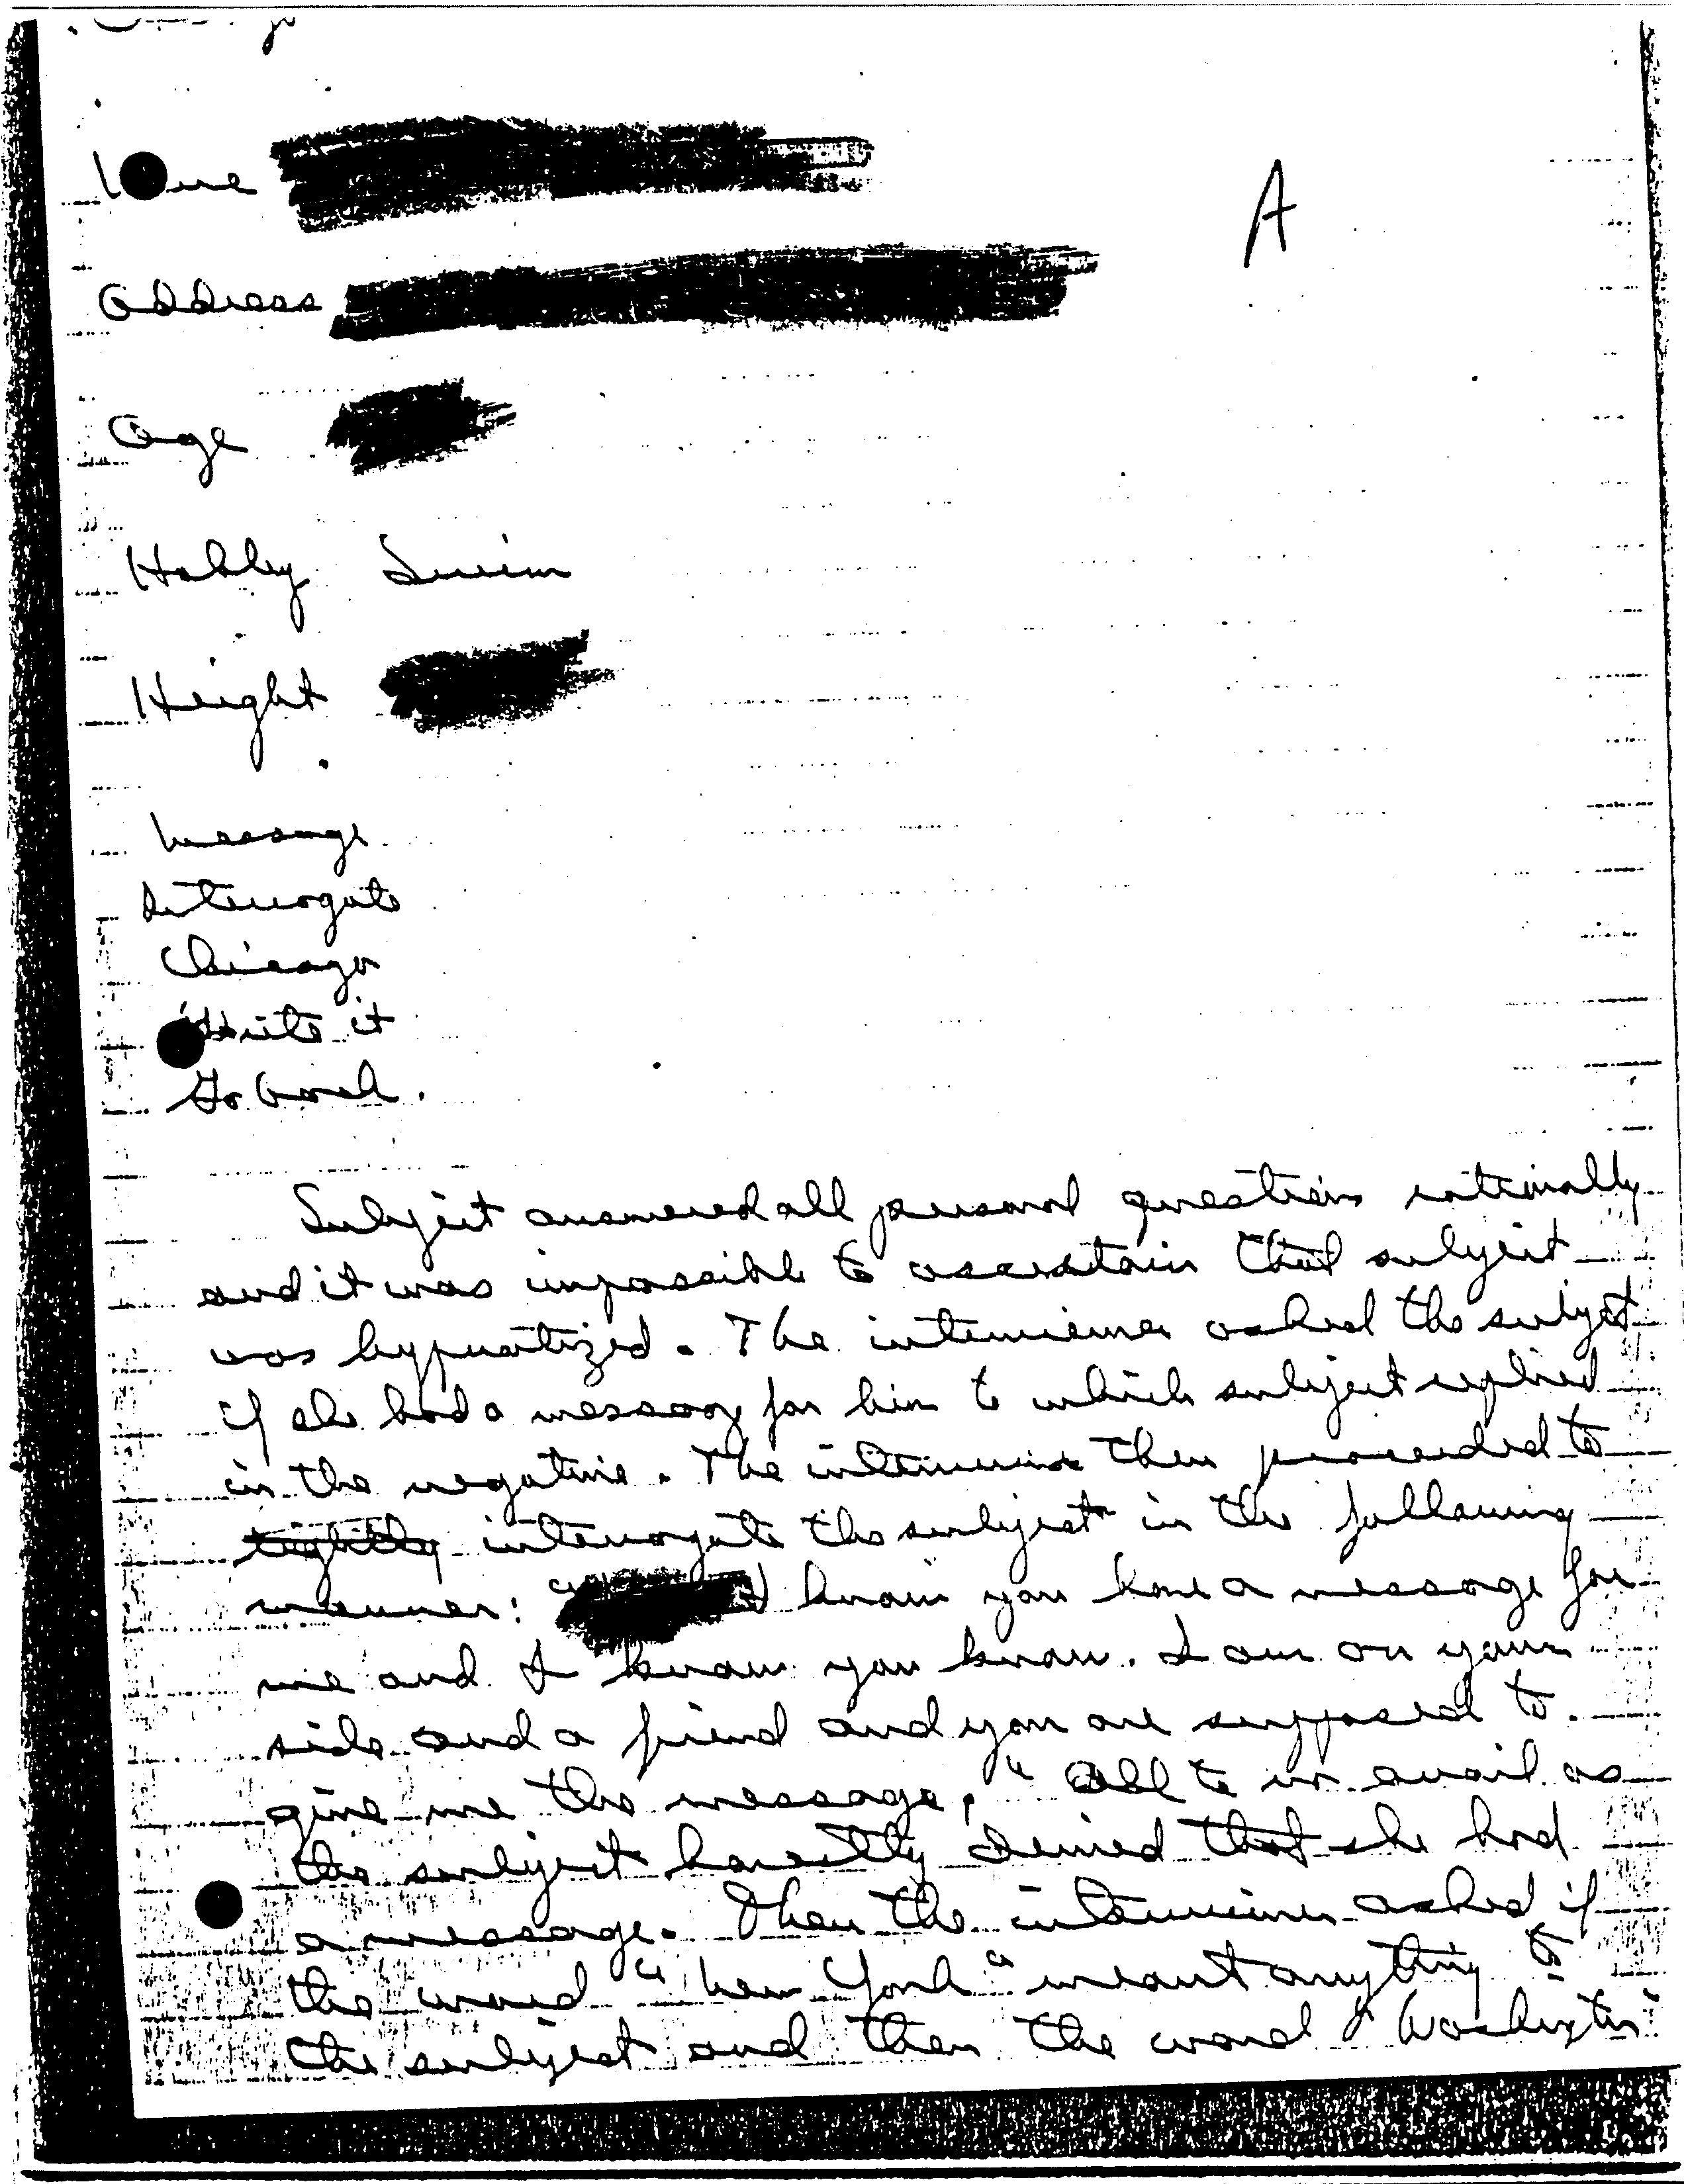 A
Address
Age
Hobby Swim
Height
Message
Interrogate
Chicago
Write it
Go back.
Subject answered all personal questions rationally
and it was impossible to ascertain that subject
was hypnotized. The interviewer asked the subject
if she had a message for him to which subject replied
in the negative. The interviewer then proceeded to
interrogate the subject in the following
manner: " I know you have a message for
me and I know you know. I am on your
side and a friend and you are supposed to
give me the message." All to no avail as
the subject honestly denied that she had
a message. Then the interviewer asked if
the word "New York" meant anything to
the subject and then the word "Washington"